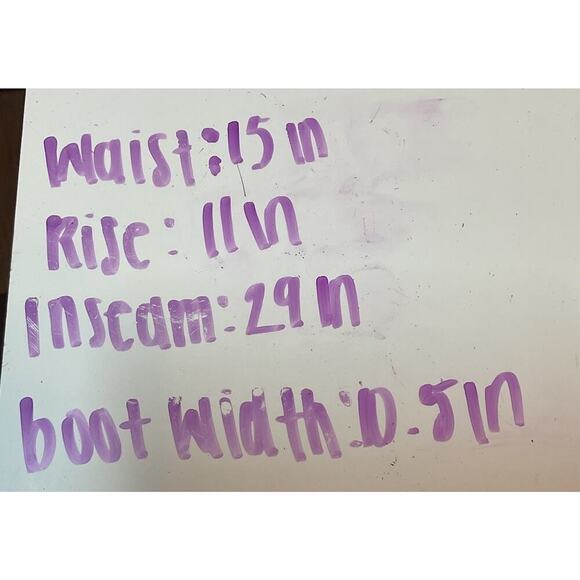 Waist: 15 in
Rise: 11 in
Inseam: 29 in
boot width: 10.5 in